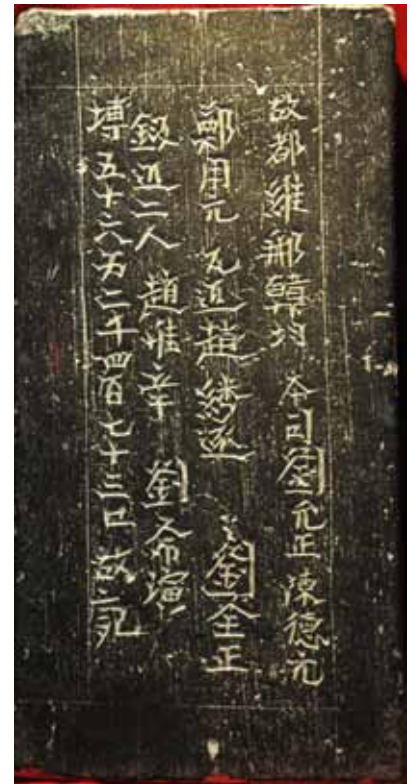 故都維那韓均 夲司劉元正陳德元
鄭用元 瓦匠趙 劉全正
匠二人 趙惟幸 劉希演
塼五十六万二千四百七十三口 故之記